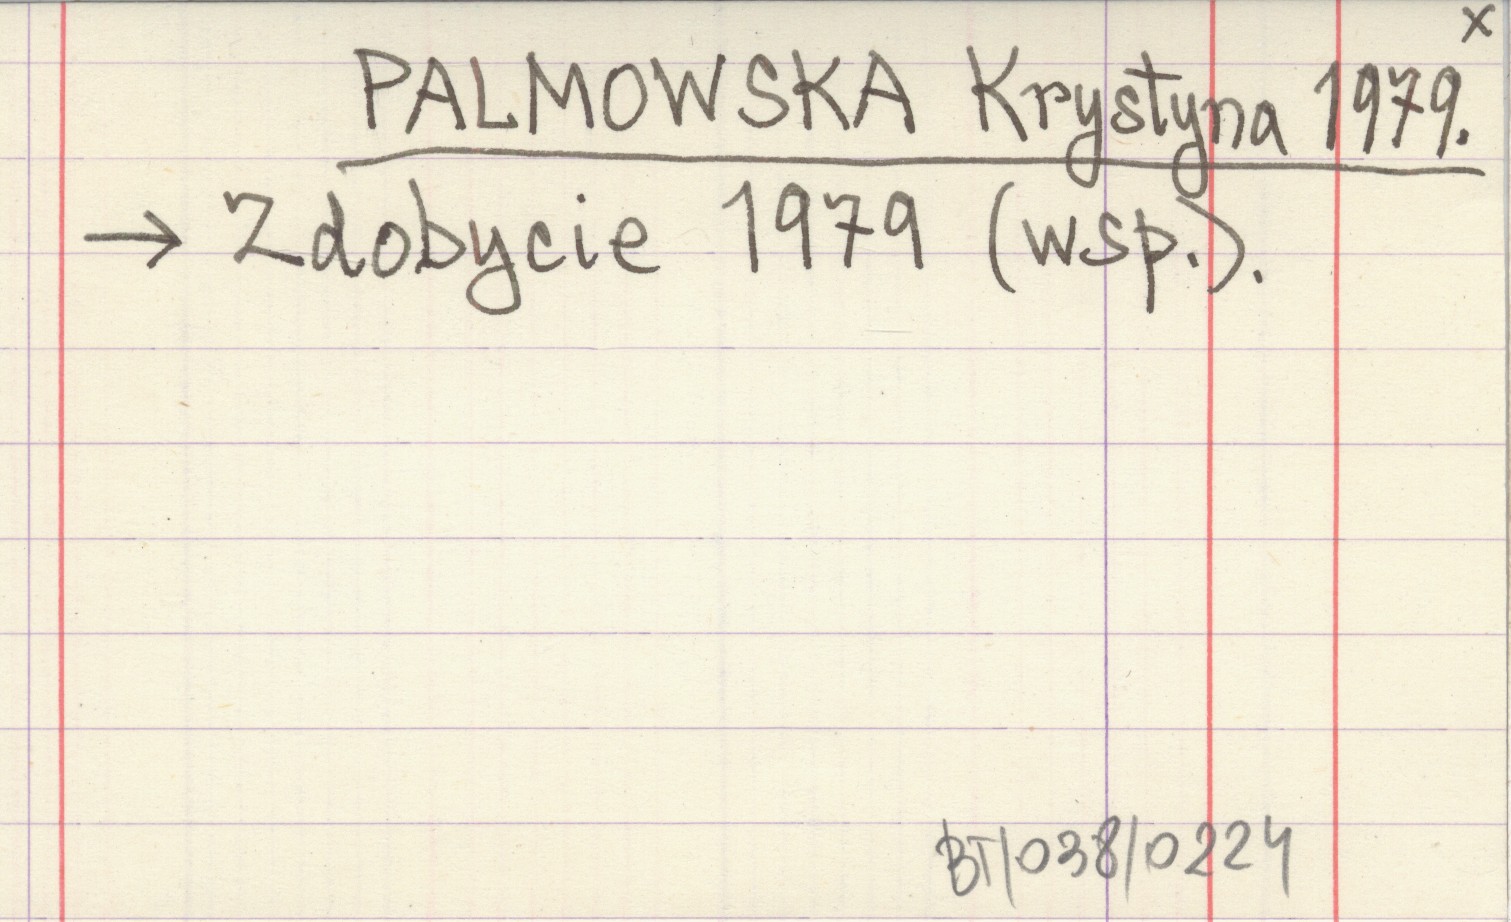 x
PALMOWSKA Krystyna 1979.
→ Zdobycie 1979 (wsp.).
BT/038/0224